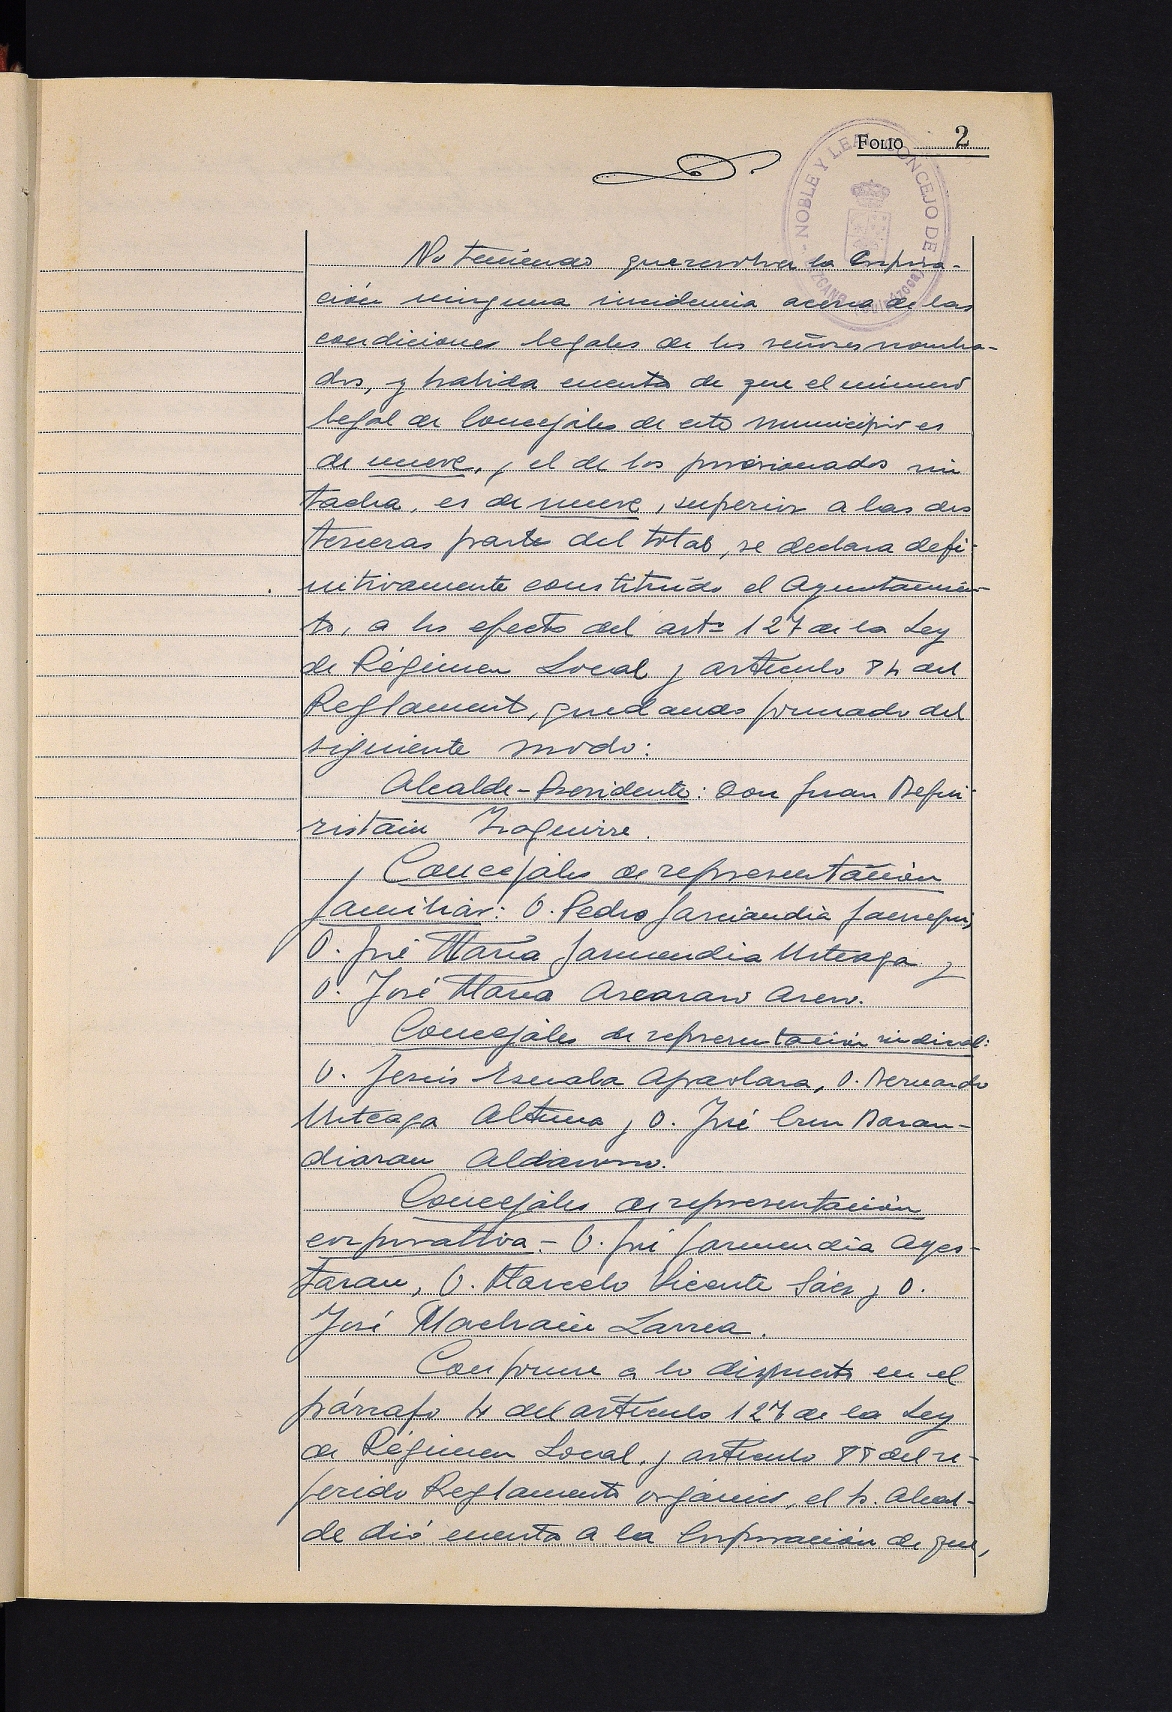 FOLIO 2
NOBLE Y LEAL CONCEJO DE
No teniendo que resolver la Corpora-
ción ninguna incidencia acerca de las
condiciones legales de los señores nombra-
dos, y habida cuenta de que el número
legal de Concejales de este municipio es
de nueve, y el de los posesionados sin
tacha, es de nueve, superior a las dos
terceras partes del total, se declara defi-
nitivamente constituído el Ayuntamien-
to, a los efectos del artº 127 de la Ley
de Régimen Local y artículo 84 del
Reglamento, quedando formado del
siguiente modo:
Alcalde-Presidente: Don Juan Begui-
ristain Izaguirre.
Concejales de representación
familiar: D. Pedro Garciandia
D. José María Garmendia Urteaga y
D. José María
Concejales de representación sindical:
D. Jesús Escuala Apaolaza, D. Bernardo
Urteaga Altuna y D. José Cruz Baran-
diaran
Concejales de representación
corporativa.- D. José Garmendia Ayes-
taran, D. Marcelo Vicente Sáez y D.
José Machain Larrea.
Conforme a lo dispuesto en el
párrafo 4 del artículo 127 de la Ley
de Régimen Local, y artículo 88 del re-
ferido Reglamento orgánico, el Sr. Alcal-
de dió cuenta a la Corporación de que,